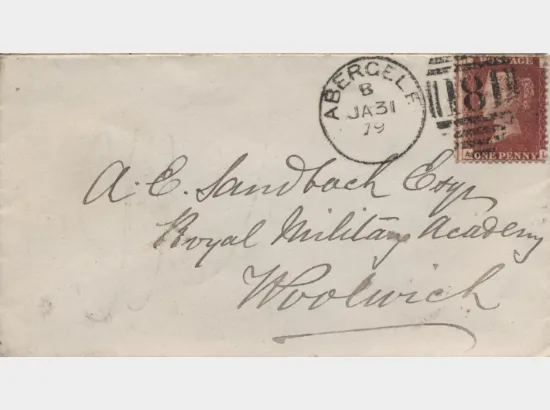 ABERGELE
B
JA 31
79
POSTAGE
181
ONE PENNY
A. E. Sandbach Esqr
Royal Military Academy
Woolwich